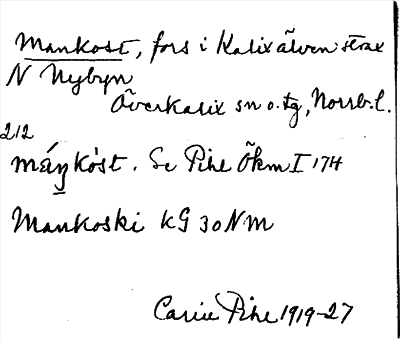 Mankost, fors i Kalixälven strax
N Nybyn
Överkalix sn o. tg, Norrb. l.
212
máŋkòst. Se Pihl Ökm I 174
Mankoski kG 30 NM
Carin Pihl 1919-27